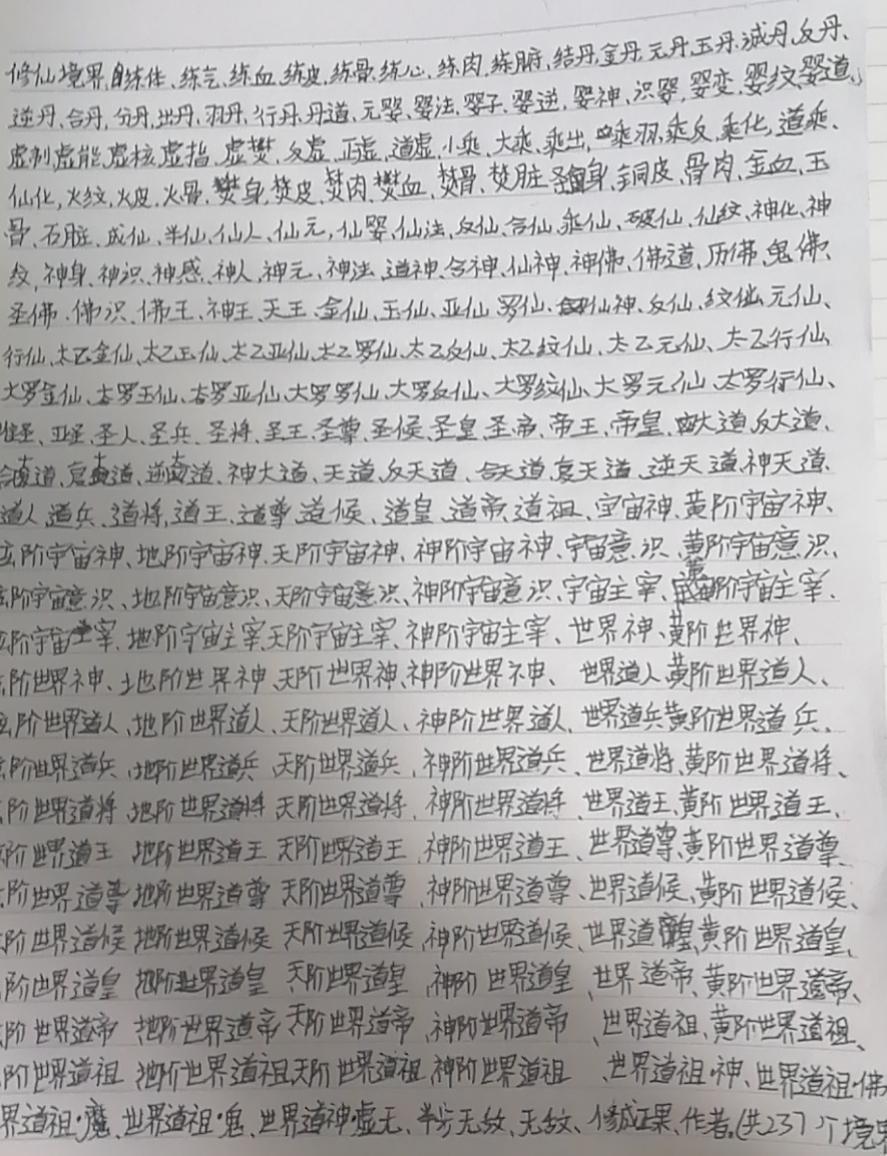 修仙境界,练体、练气、练血、练皮、练骨、练心、练肉、练脏、结丹、金丹、元丹、玉丹、诚丹、反丹、
逆丹、合丹、分丹、出丹、羽丹、行丹、丹道、元婴、婴法、婴子、婴逆、婴神、识婴、婴变、婴纹、婴道、
虚刹、虚能、虚核、虚指、虚焚、反虚、正虚、道虚、小乘、大乘、乘出、乘羽、乘反、乘化、道乘、
仙化、火纹、火皮、火骨、焚身、焚皮、焚肉、焚血、焚骨、焚脏、身、铜皮、骨肉、金血、玉
骨、石脏、成仙、半仙、仙人、仙元、仙婴、仙法、反仙、合仙、乘仙、破仙、仙纹、神化、神
纹、神身、神识、神感、神人、神元、神法、道神、合神、仙神、神佛、佛道、历佛、鬼佛、
圣佛、佛识、佛王、神王、天王、金仙、玉仙、亚仙、罗仙、仙神、反仙、纹仙、元仙、
行仙、太乙金仙、太乙玉仙、太乙亚仙、太乙罗仙、太乙反仙、太乙纹仙、太乙元仙、太乙行仙、
大罗金仙、大罗玉仙、大罗亚仙、大罗罗仙、大罗反仙、大罗纹仙、大罗元仙、大罗行仙、
准圣、亚圣、圣人、圣兵、圣将、圣王、圣尊、圣候、圣皇、圣帝、帝王、帝皇、大道、反大道、
合大道、大道、逆大道、神大道、天道、反天道、合天道、天道、逆天道、神天道、
道人、道兵、道将、道王、道尊、道候、道皇、道帝、道祖、宇宙神、黄阶宇宙神、
玄阶宇宙神、地阶宇宙神、天阶宇宙神、神阶宇宙神、宇宙意识、黄阶宇宙意识、
玄阶宇宙意识、地阶宇宙意识、天阶宇宙意识、神阶宇宙意识、宇宙主宰、黄阶宇宙主宰、
玄阶宇宙主宰、地阶宇宙主宰、天阶宇宙主宰、神阶宇宙主宰、世界神、黄阶世界神、
阶世界神、地阶世界神、天阶世界神、神阶世界神、世界道人、黄阶世界道人、
玄阶世界道人、地阶世界道人、天阶世界道人、神阶世界道人、世界道兵、黄阶世界道兵、
玄阶世界道兵、地阶世界道兵、天阶世界道兵、神阶世界道兵、世界道将、黄阶世界道将、
阶世界道将 地阶世界道将 天阶世界道将、神阶世界道将、世界道王、黄阶世界道王、
阶世界道王 地阶世界道王 天阶世界道王、神阶世界道王、世界道尊、黄阶世界道尊、
阶世界道尊 地阶世界道尊 天阶世界道尊、神阶世界道尊、世界道候、黄阶世界道候、
阶世界道候 地阶世界道候 天阶世界道候、神阶世界道候、世界道皇、黄阶世界道皇、
阶世界道皇 地阶世界道皇 天阶世界道皇、神阶世界道皇、世界道帝、黄阶世界道帝、
阶世界道帝 地阶世界道帝 天阶世界道帝、神阶世界道帝、世界道祖、黄阶世界道祖、
阶世界道祖 地阶世界道祖 天阶世界道祖、神阶世界道祖、世界道祖·神、世界道祖·佛
界道祖·魔、世界道祖·鬼、世界道神·虚无、半步无敌、无敌、修成正果、作者。(共237个境界